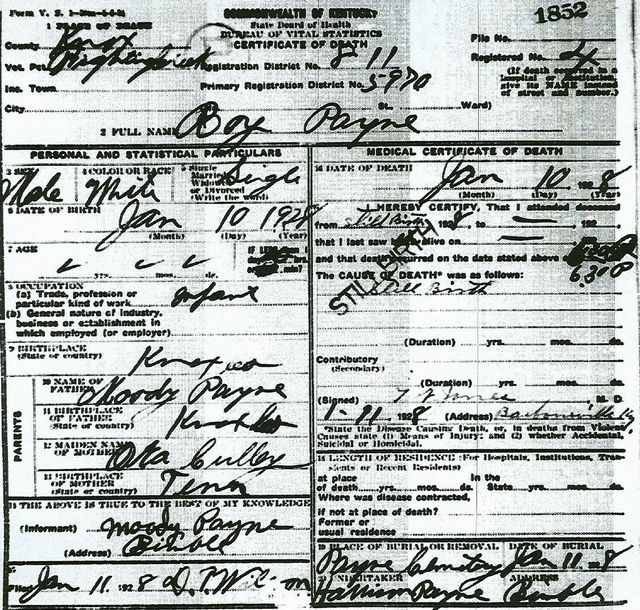 Form V. S.
COMMONWEALTH OF KENTUCKY
State Board of Health
BUREAU OF VITAL STATISTICS
CERTIFICATE OF DEATH
1852
1 PLACE OF DEATH
County Knox
Vot. Pct.
Inc. Town
City
Registration District No. 811
Primary Registration District No. 5970
File No.
Registered No. 4
(If death occurred in a hospital or institution, give its NAME instead of street and number.)
St. Ward)
2 FULL NAME Boy Payne
PERSONAL AND STATISTICAL PARTICULARS
3 SEX Male
4 COLOR OR RACE White
5 Single Married Widowed or Divorced (Write the word) Single
6 DATE OF BIRTH Jan 10 1928
(Month) (Day) (Year)
7 AGE
yrs. mos. ds.
8 OCCUPATION
(a) Trade, profession or particular kind of work Infant
(b) General nature of industry, business or establishment in which employed (or employer)
9 BIRTHPLACE
(State or country) Knox co
PARENTS
10 NAME OF FATHER Moody Payne
11 BIRTHPLACE OF FATHER
(State or country) Knox co
12 MAIDEN NAME OF MOTHER
13 BIRTHPLACE OF MOTHER
(State or country) Tenn
14 THE ABOVE IS TRUE TO THE BEST OF MY KNOWLEDGE
(Informant) Moody Payne
(Address) Bimble
15
Filed Jan 11 1928
MEDICAL CERTIFICATE OF DEATH
16 DATE OF DEATH
Jan 10 1928
(Month) (Day) (Year)
17 I HEREBY CERTIFY, That I attended deceased
from Still Birth 1928, to — 192
that I last saw h alive on —
and that death occurred on the date stated above at 6.30 P
The CAUSE OF DEATH* was as follows:
Still Birth
STILLBIRTH
(Duration) yrs. mos. ds.
Contributory
(Secondary)
(Duration) yrs. mos. ds.
(Signed) M. D.
1-11 1928 (Address) Barbourville Ky
*State the Disease Causing Death, or, in deaths from Violent Causes state (1) Means of Injury; and (2) whether Accidental, Suicidal or Homicidal.
18 LENGTH OF RESIDENCE (For Hospitals, Institutions, Transients or Recent Residents)
at place of death yrs. mos. ds. In the State yrs. mos. ds.
Where was disease contracted, if not at place of death?
Former or usual residence
19 PLACE OF BURIAL OR REMOVAL DATE OF BURIAL
Payne Cemetery Jan 11 1928
20 UNDERTAKER ADDRESS
Harrison Payne Bimble